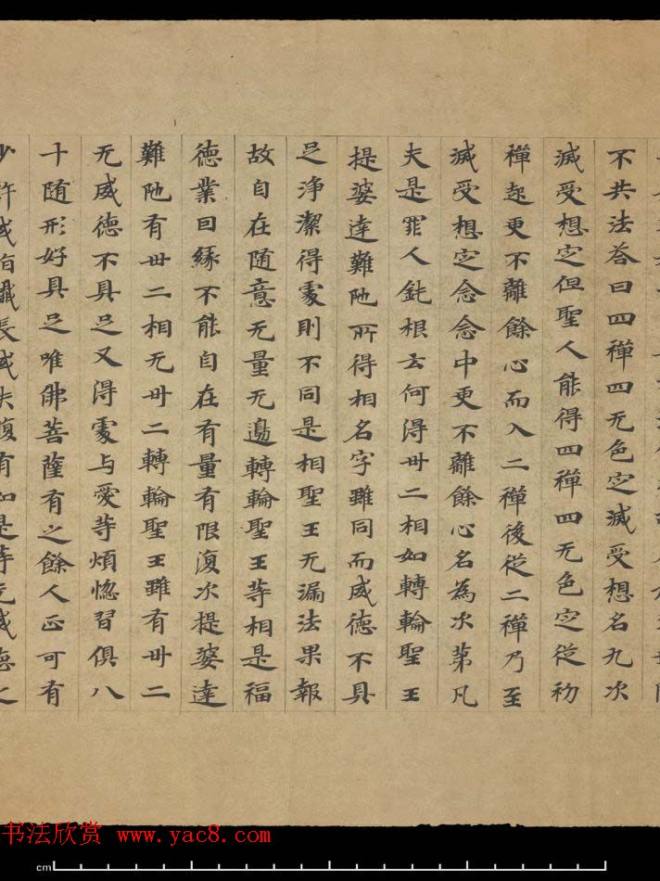 不共法荅曰四禪四无色㝎滅受想名九次
滅受想㝎但聖人能得四禪四无色㝎從初
禪起更不離餘心而入二禪後從二禪乃至
滅受想㝎念念中更不離餘心名為次第凡
夫是罪人鈍根云何得卅二相如轉輪聖王
提婆達難陁所得相名字雖同而威德不具
足淨潔得處則不同是相聖王无漏法果報
故自在随意无量无邊轉輪聖王等相是福
德業因緣不能自在有量有限復次提婆達
難陁有卅二相无卅二轉輪聖王雖有卅二
无威德不具足又得處与愛等煩惱習俱八
十随形好具足唯佛菩薩有之餘人正可有
少許或指纖長或失腹有如是等无威德之
书法欣赏 www.yac8.com
cm